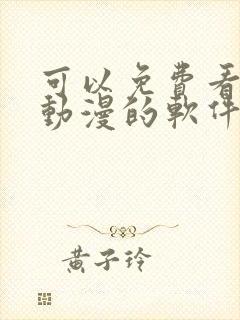 可以免費看
動漫的軟件
黃子玲